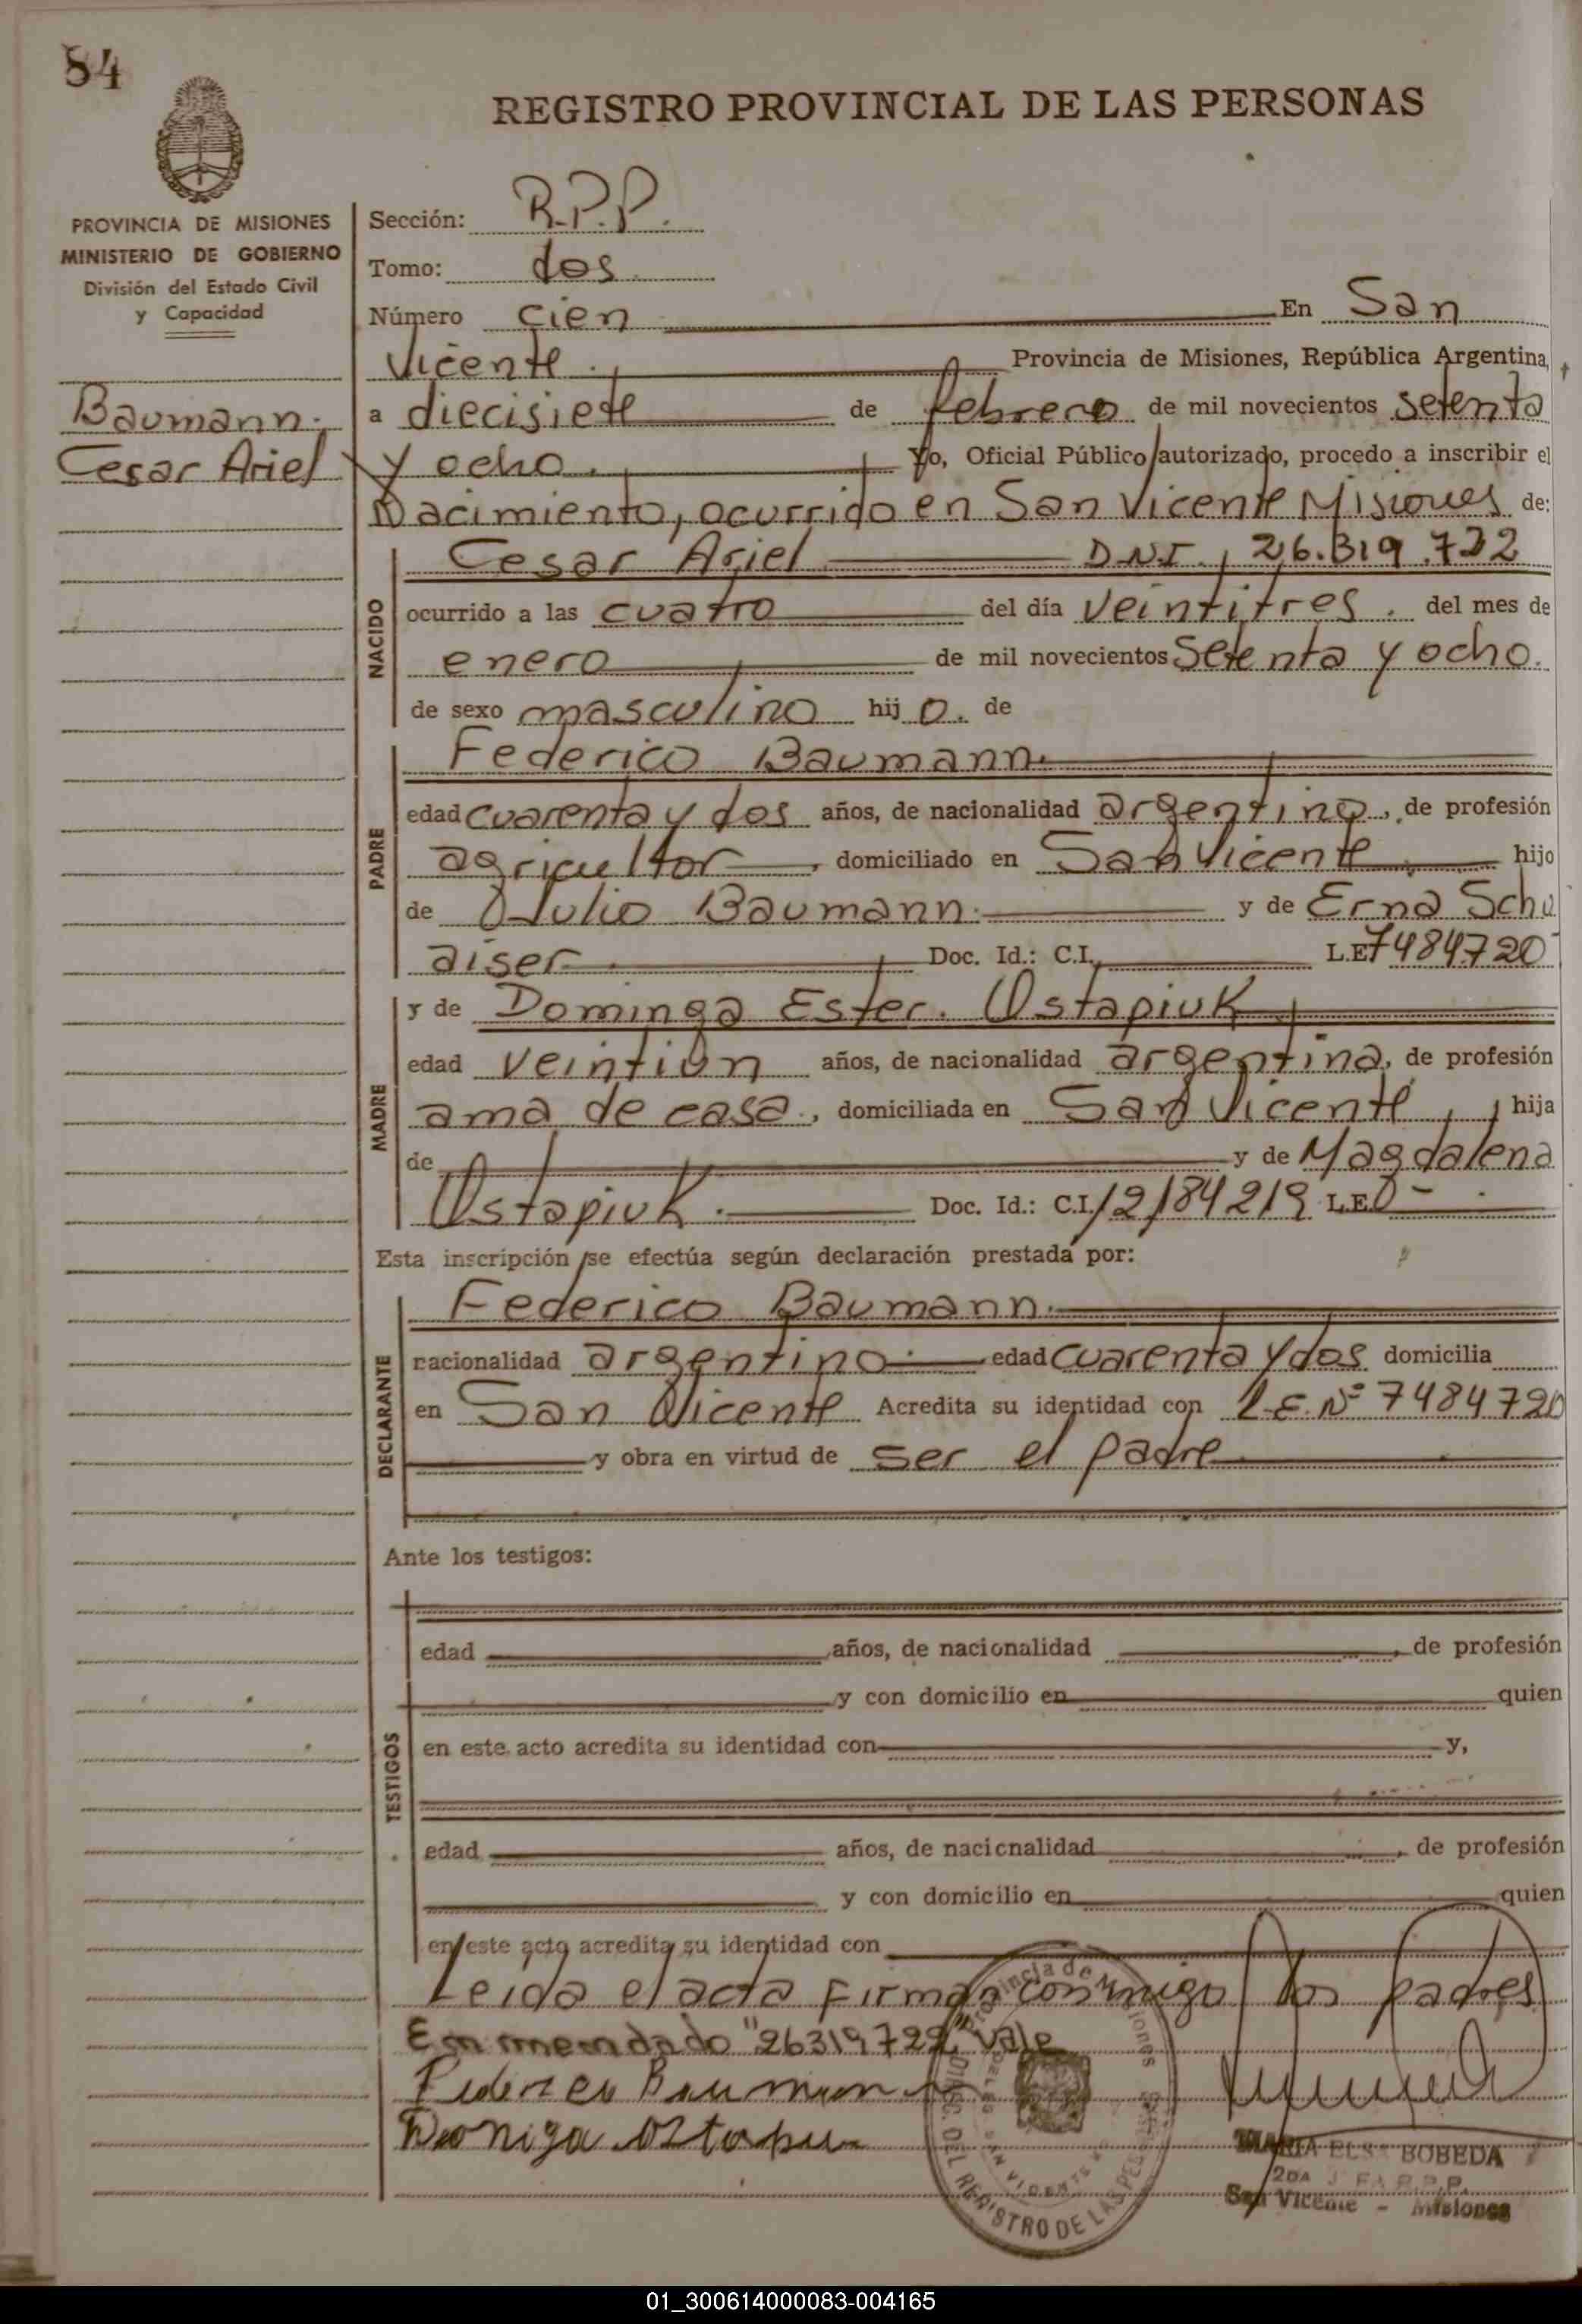 84
REGISTRO PROVINCIAL DE LAS PERSONAS
PROVINCIA DE MISIONES
MINISTERIO DE GOBIERNO
División del Estado Civil
y Capacidad
Baumann.
Cesar Ariel
Sección: R.P.P.
Tomo: dos.
Número cien En San
Vicente. Provincia de Misiones, República Argentina,
a diecisiete de febrero de mil novecientos setenta
y ocho. Yo, Oficial Público autorizado, procedo a inscribir el
Nacimiento, ocurrido en San Vicente Misiones de:
NACIDO
Cesar Ariel D.N.I. 26.319.722
ocurrido a las cuatro del día veintitres. del mes de
enero de mil novecientos setenta y ocho.
de sexo masculino hijo. de
PADRE
Federico Baumann.
edad cuarenta y dos años, de nacionalidad argentino, de profesión
agricultor, domiciliado en San Vicente hijo
de Julio Baumann. y de Erna Schu
aiser. Doc. Id.: C.I. L.E. 7484720
MADRE
y de Dominga Ester. Ostapiuk
edad veintiún años, de nacionalidad argentina, de profesión
ama de casa., domiciliada en San Vicente, hija
de y de Magdalena
Ostapiuk. Doc. Id.: C.I. 12184219 L.E.
Esta inscripción se efectúa según declaración prestada por:
DECLARANTE
Federico Baumann.
nacionalidad argentino. edad cuarenta y dos domicilia
en San Vicente Acredita su identidad con L.E. Nº 7484720
y obra en virtud de ser el padre
Ante los testigos:
TESTIGOS
edad años, de nacionalidad, de profesión
y con domicilio en quien
en este acto acredita su identidad con y,
edad años, de nacionalidad, de profesión
y con domicilio en quien
en este acto acredita su identidad con
Leida el acta firman conmigo los padres
Enmendado "26319722" vale
Federico Baumann
MARIA ELSA BOBEDA
2DA JEFA R.P.P.
San Vicente - Misiones
Provincia de Misiones
DIREC. DEL REGISTRO DE LAS PERSONAS
SAN VICENTE
01_300614000083-004165